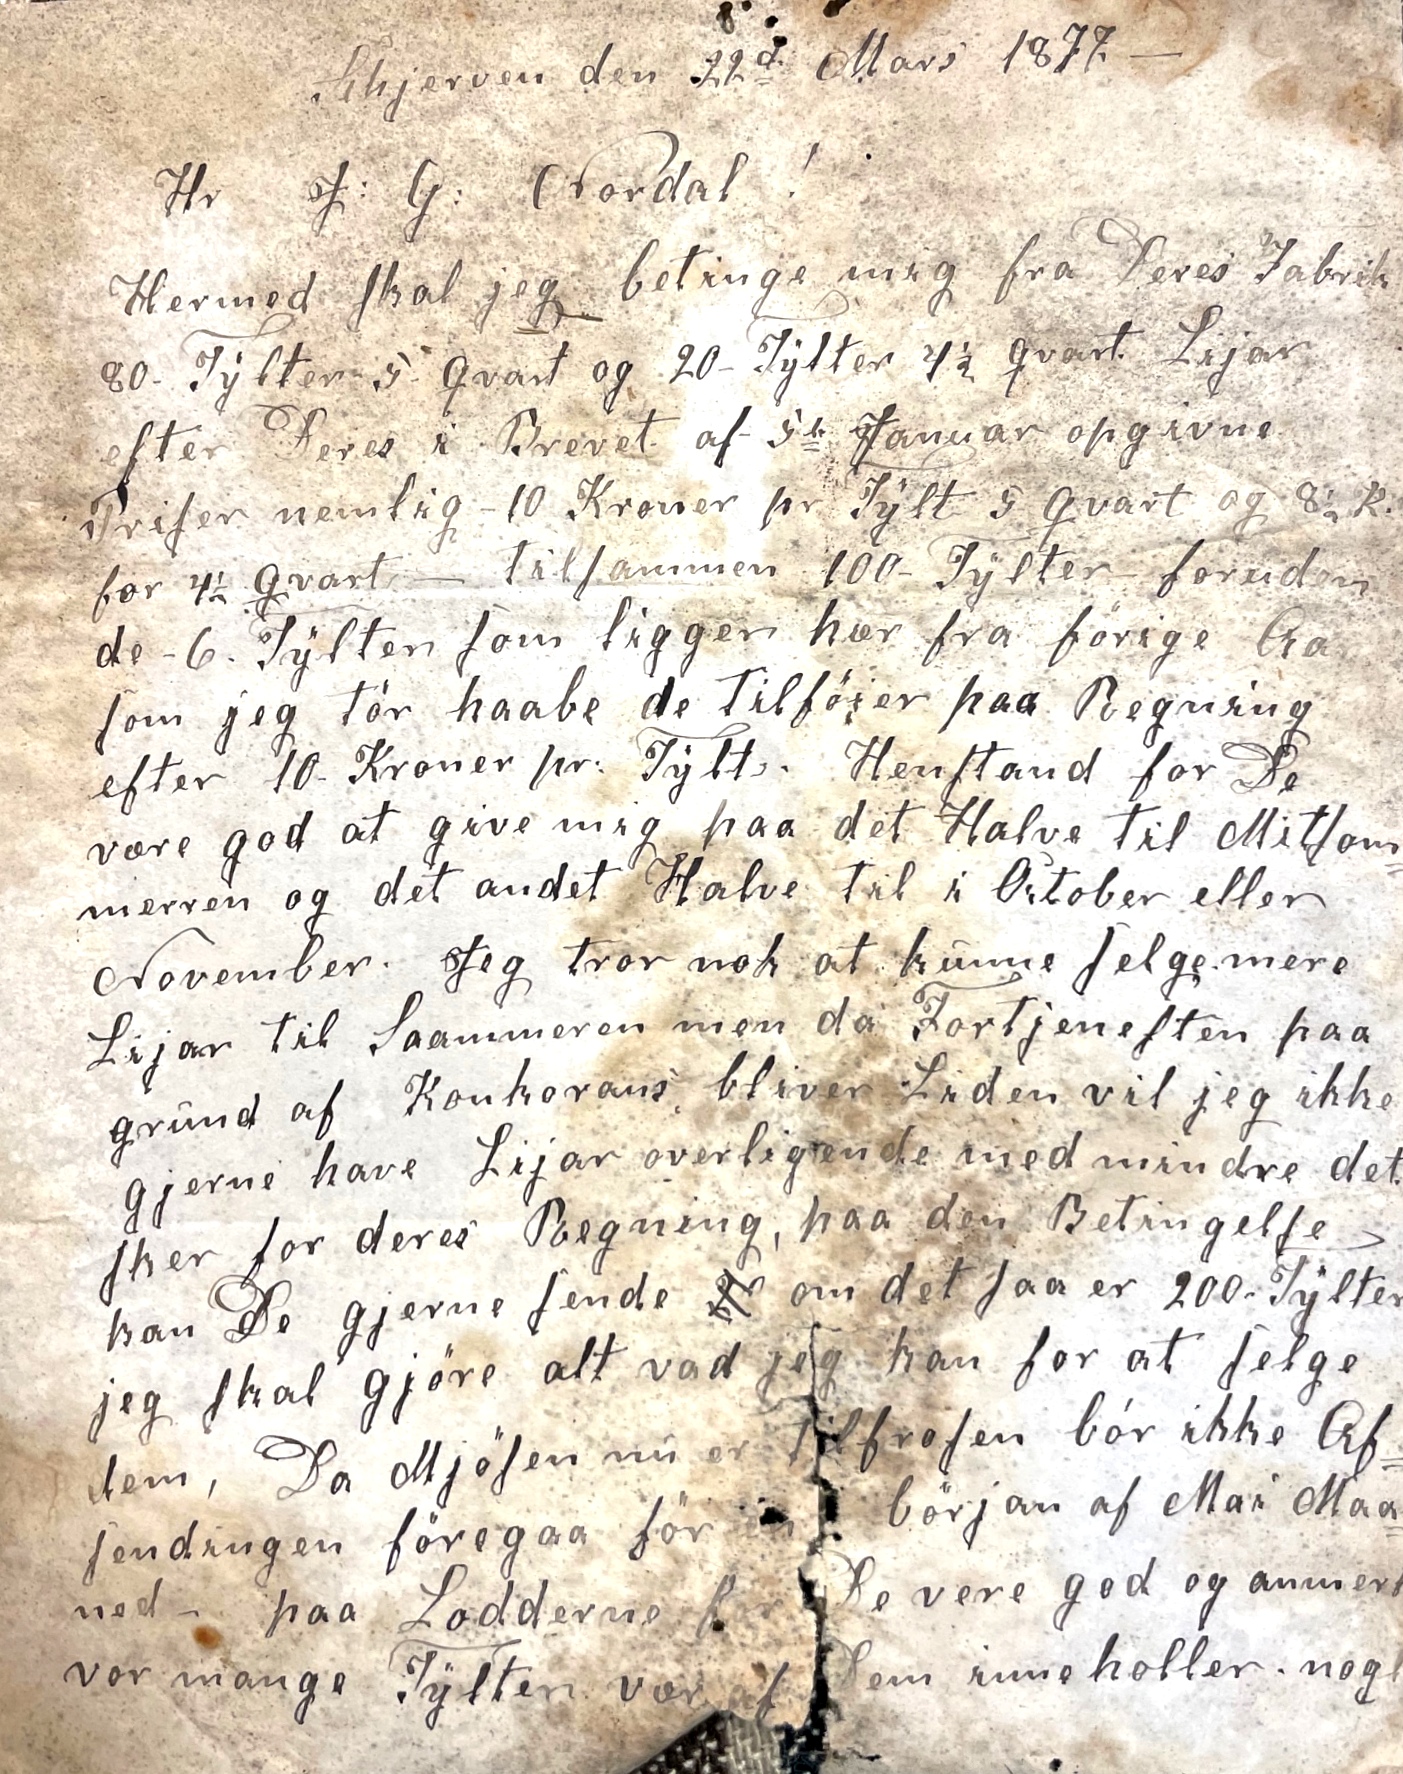 Skjerven den 22d Mars 1877 —
Hr J: G: Nordal!
Hermed skal jeg betinge mig fra Deres Fabrik
80- Tÿlter 5 Qvart og 20- Tÿlter 4½ Qvart Lijar
efter Deres i Brevet af 5te Januar opgivne
Priser nemlig - 10 Kroner pr Tÿlt 5 Qvart og 8½ K.
for 4½ Qvart — tilsammen 100- Tÿlter foruden
de - 6. Tÿlter som ligger hær fra förige Aa
som jeg tör haabe de tilföier paa Regning
efter 10- Kroner pr: Tÿlt. Henstand for De
være god at give mig paa det Halve til Mitsom=
merren og det andet Halve til i October eller
November. Jeg tror nok at kunne selge mere
Lijar til Saammeren men da Fortjenesten paa
grund af Konkorans bliver Liden vil jeg ikke
gjerne have Lijar overligende med mindre det
sker for deres Regning, paa den Betingelse
kan De gjerne sende om det saa er 200- Tÿlter
jeg skal gjöre alt vad jeg kan for at selge
dem, Da Mjösen nu er tilfrosen bör ikke Af=
sendingen föregaa för början af Mai Maa=
ned - paa Lodderne De vere god og anmerk
vor mange Tÿlter vær af Dem inneholler. nogl